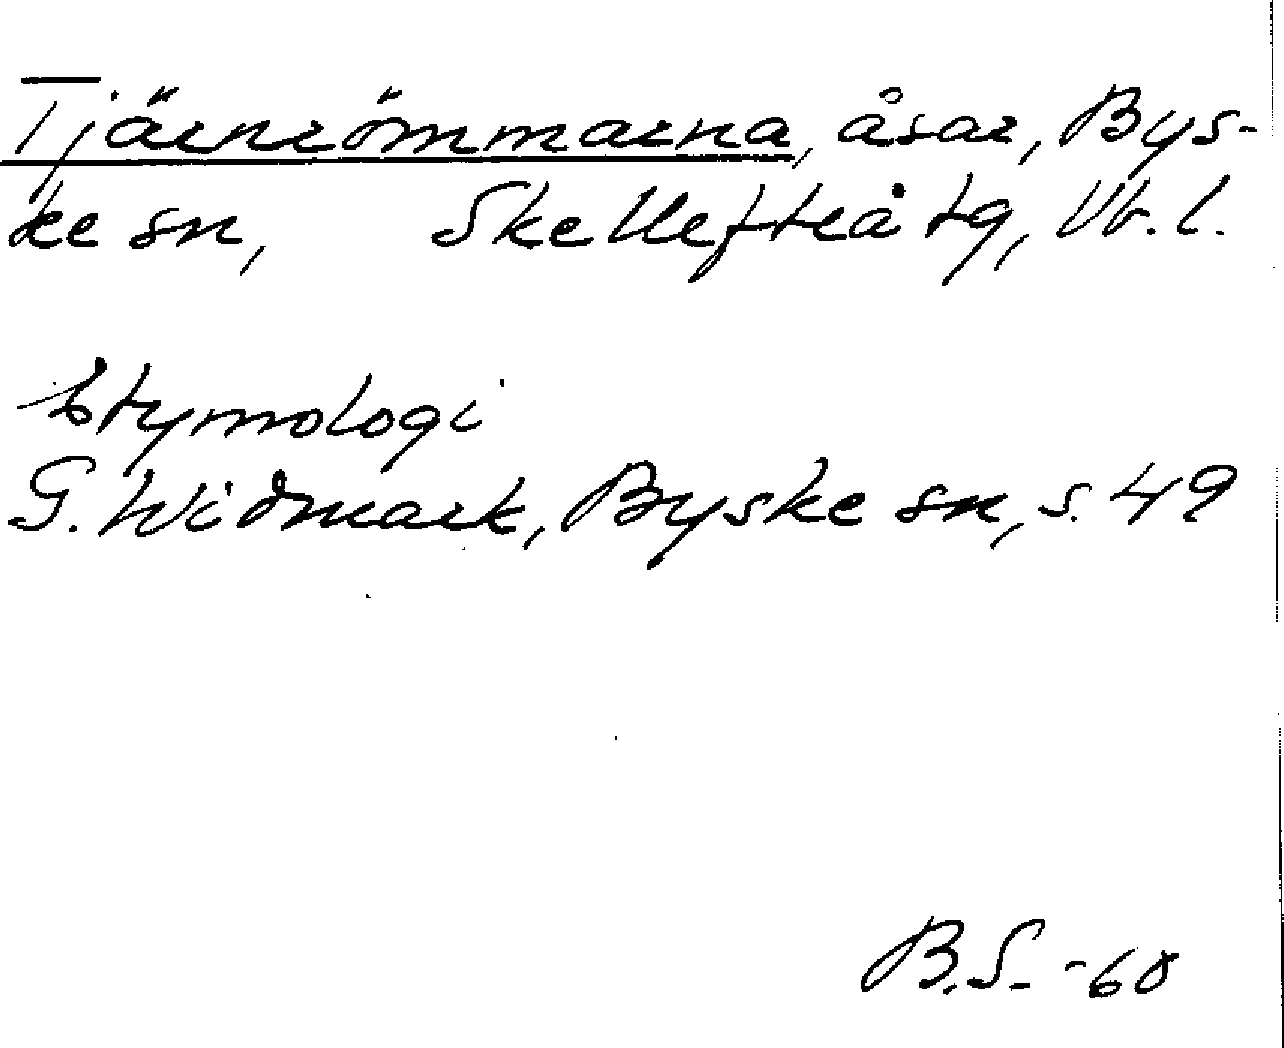 Tjärnrömmarna, åsar, Bys-
ke sn, Skellefteå tg, Vb. l.
Etymologi
G. Widmark, Byske sn, s. 49
B.S. -68